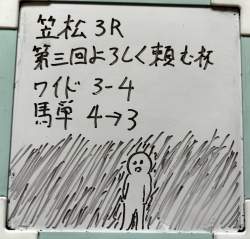 笠松 3R
第三回よろしく頼む杯
ワイド 3-4
馬単 4→3